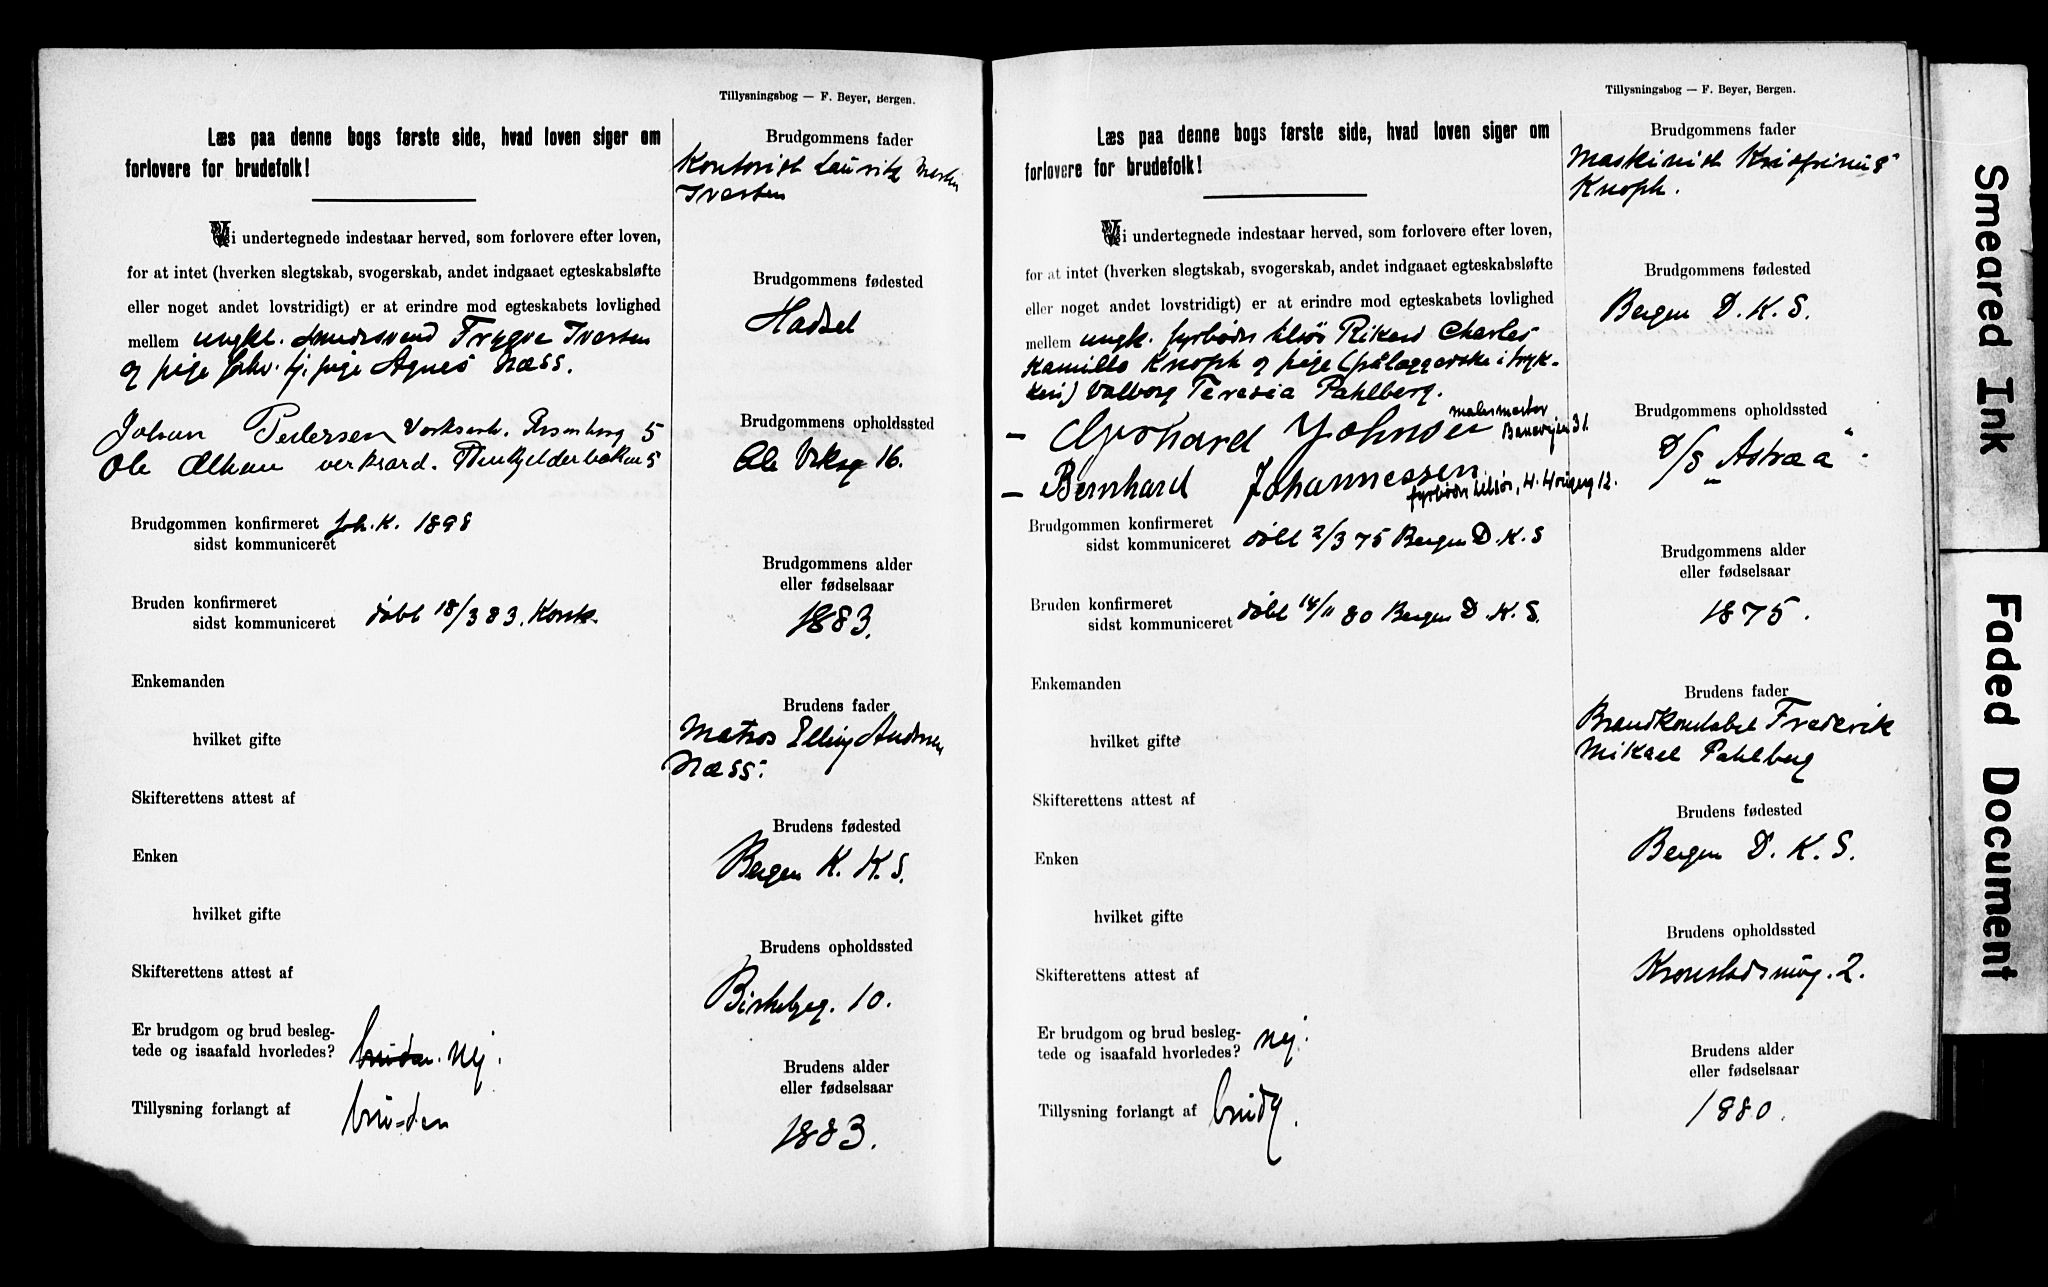 Tillysningsbog — F. Beyer, Bergen.
Læs paa denne bogs første side, hvad loven siger om
forlovere for brudefolk!
Vi undertegnede indestaar herved, som forlovere efter loven,
for at intet (hverken slegtskab, svogerskab, andet indgaaet egteskabsløfte
eller noget andet lovstridigt) er at erindre mod egteskabets lovlighed
mellem ungkl. smedsvend Trygve Iversen
og pige forhv. tj. pige Agnes Næss.
Johan Pedersen Verksarb. Rosenberg 5
Ole verksarb. 5
Brudgommen konfirmeret Joh. K. 1898
sidst kommuniceret
Bruden konfirmeret
sidst kommuniceret døbt 18/3 83. Korsk.
Enkemanden
hvilket gifte
Skifterettens attest af
Enken
hvilket gifte
Skifterettens attest af
Er brudgom og brud besleg-
tede og isaafald hvorledes? bruden. Nej.
Tillysning forlangt af bruden
Brudgommens fader
Kontorist Lauritz Martin
Iversen
Brudgommens fødested
Hadsel
Brudgommens opholdssted
Ole 16.
Brudgommens alder
eller fødselsaar
1883.
Brudens fader
Matros Elling Andersen
Næss.
Brudens fødested
Bergen K. K. S.
Brudens opholdssted
10.
Brudens alder
eller fødselsaar
1883.
Tillysningsbog — F. Beyer, Bergen.
Læs paa denne bogs første side, hvad loven siger om
forlovere for brudefolk!
Vi undertegnede indestaar herved, som forlovere efter loven,
for at intet (hverken slegtskab, svogerskab, andet indgaaet egteskabsløfte
eller noget andet lovstridigt) er at erindre mod egteskabets lovlighed
mellem ungk. fyrbøder tilsøs Rikard Charles
Kamillo Knoph og pige (pålæggerske i tryk-
keri) Valborg Teresia Pahlberg.
— Gerhard Johnsen malermester 31.
— Bernhard Johannessen fyrbøder tilsøs, 12.
Brudgommen konfirmeret
sidst kommuniceret døbt 2/3 75 Bergen D. K. S
Bruden konfirmeret
sidst kommuniceret døbt 14/11 80 Bergen D. K. S.
Enkemanden
hvilket gifte
Skifterettens attest af
Enken
hvilket gifte
Skifterettens attest af
Er brudgom og brud besleg-
tede og isaafald hvorledes? Nej.
Tillysning forlangt af brudg.
Brudgommens fader
Maskinist Krispinus
Knoph.
Brudgommens fødested
Bergen D. K. S.
Brudgommens opholdssted
D/S „Astræa“.
Brudgommens alder
eller fødselsaar
1875.
Brudens fader
Brandkonstabel Frederik
Mikael Pahlberg
Brudens fødested
Bergen D. K. S.
Brudens opholdssted
2.
Brudens alder
eller fødselsaar
1880.
Smeared Ink
Faded Document